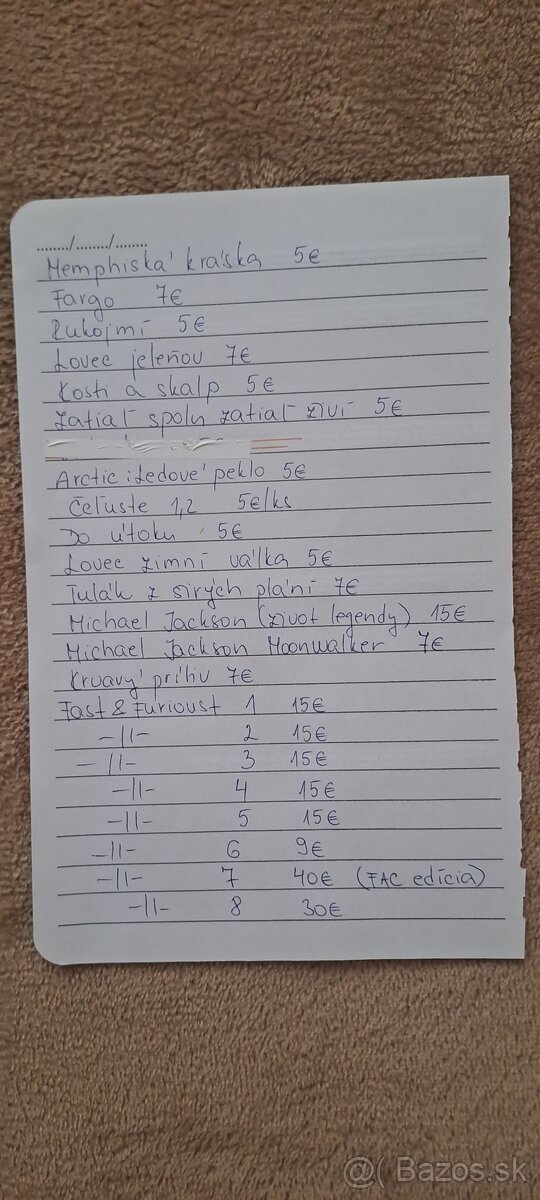 ......../......../........
Memphiská kráska 5€
Fargo 7€
Rukojmí 5€
Lovec jeleňou 7€
Kosti a skalp 5€
Zatiaľ spolu zatiaľ živí 5€
Arctic: Ledové peklo 5€
Čeľuste 1,2 5€/ks
Do útoku 5€
Lovec zimní válka 5€
Tulák z širých plání 7€
Michael Jackson (život legendy) 15€
Michael Jackson Moonwalker 7€
Krvavý príliv 7€
Fast & Furioust 1 15€
-||- 2 15€
-||- 3 15€
-||- 4 15€
-||- 5 15€
-||- 6 9€
-||- 7 40€ (FAC edícia)
-||- 8 30€
@( Bazos.sk